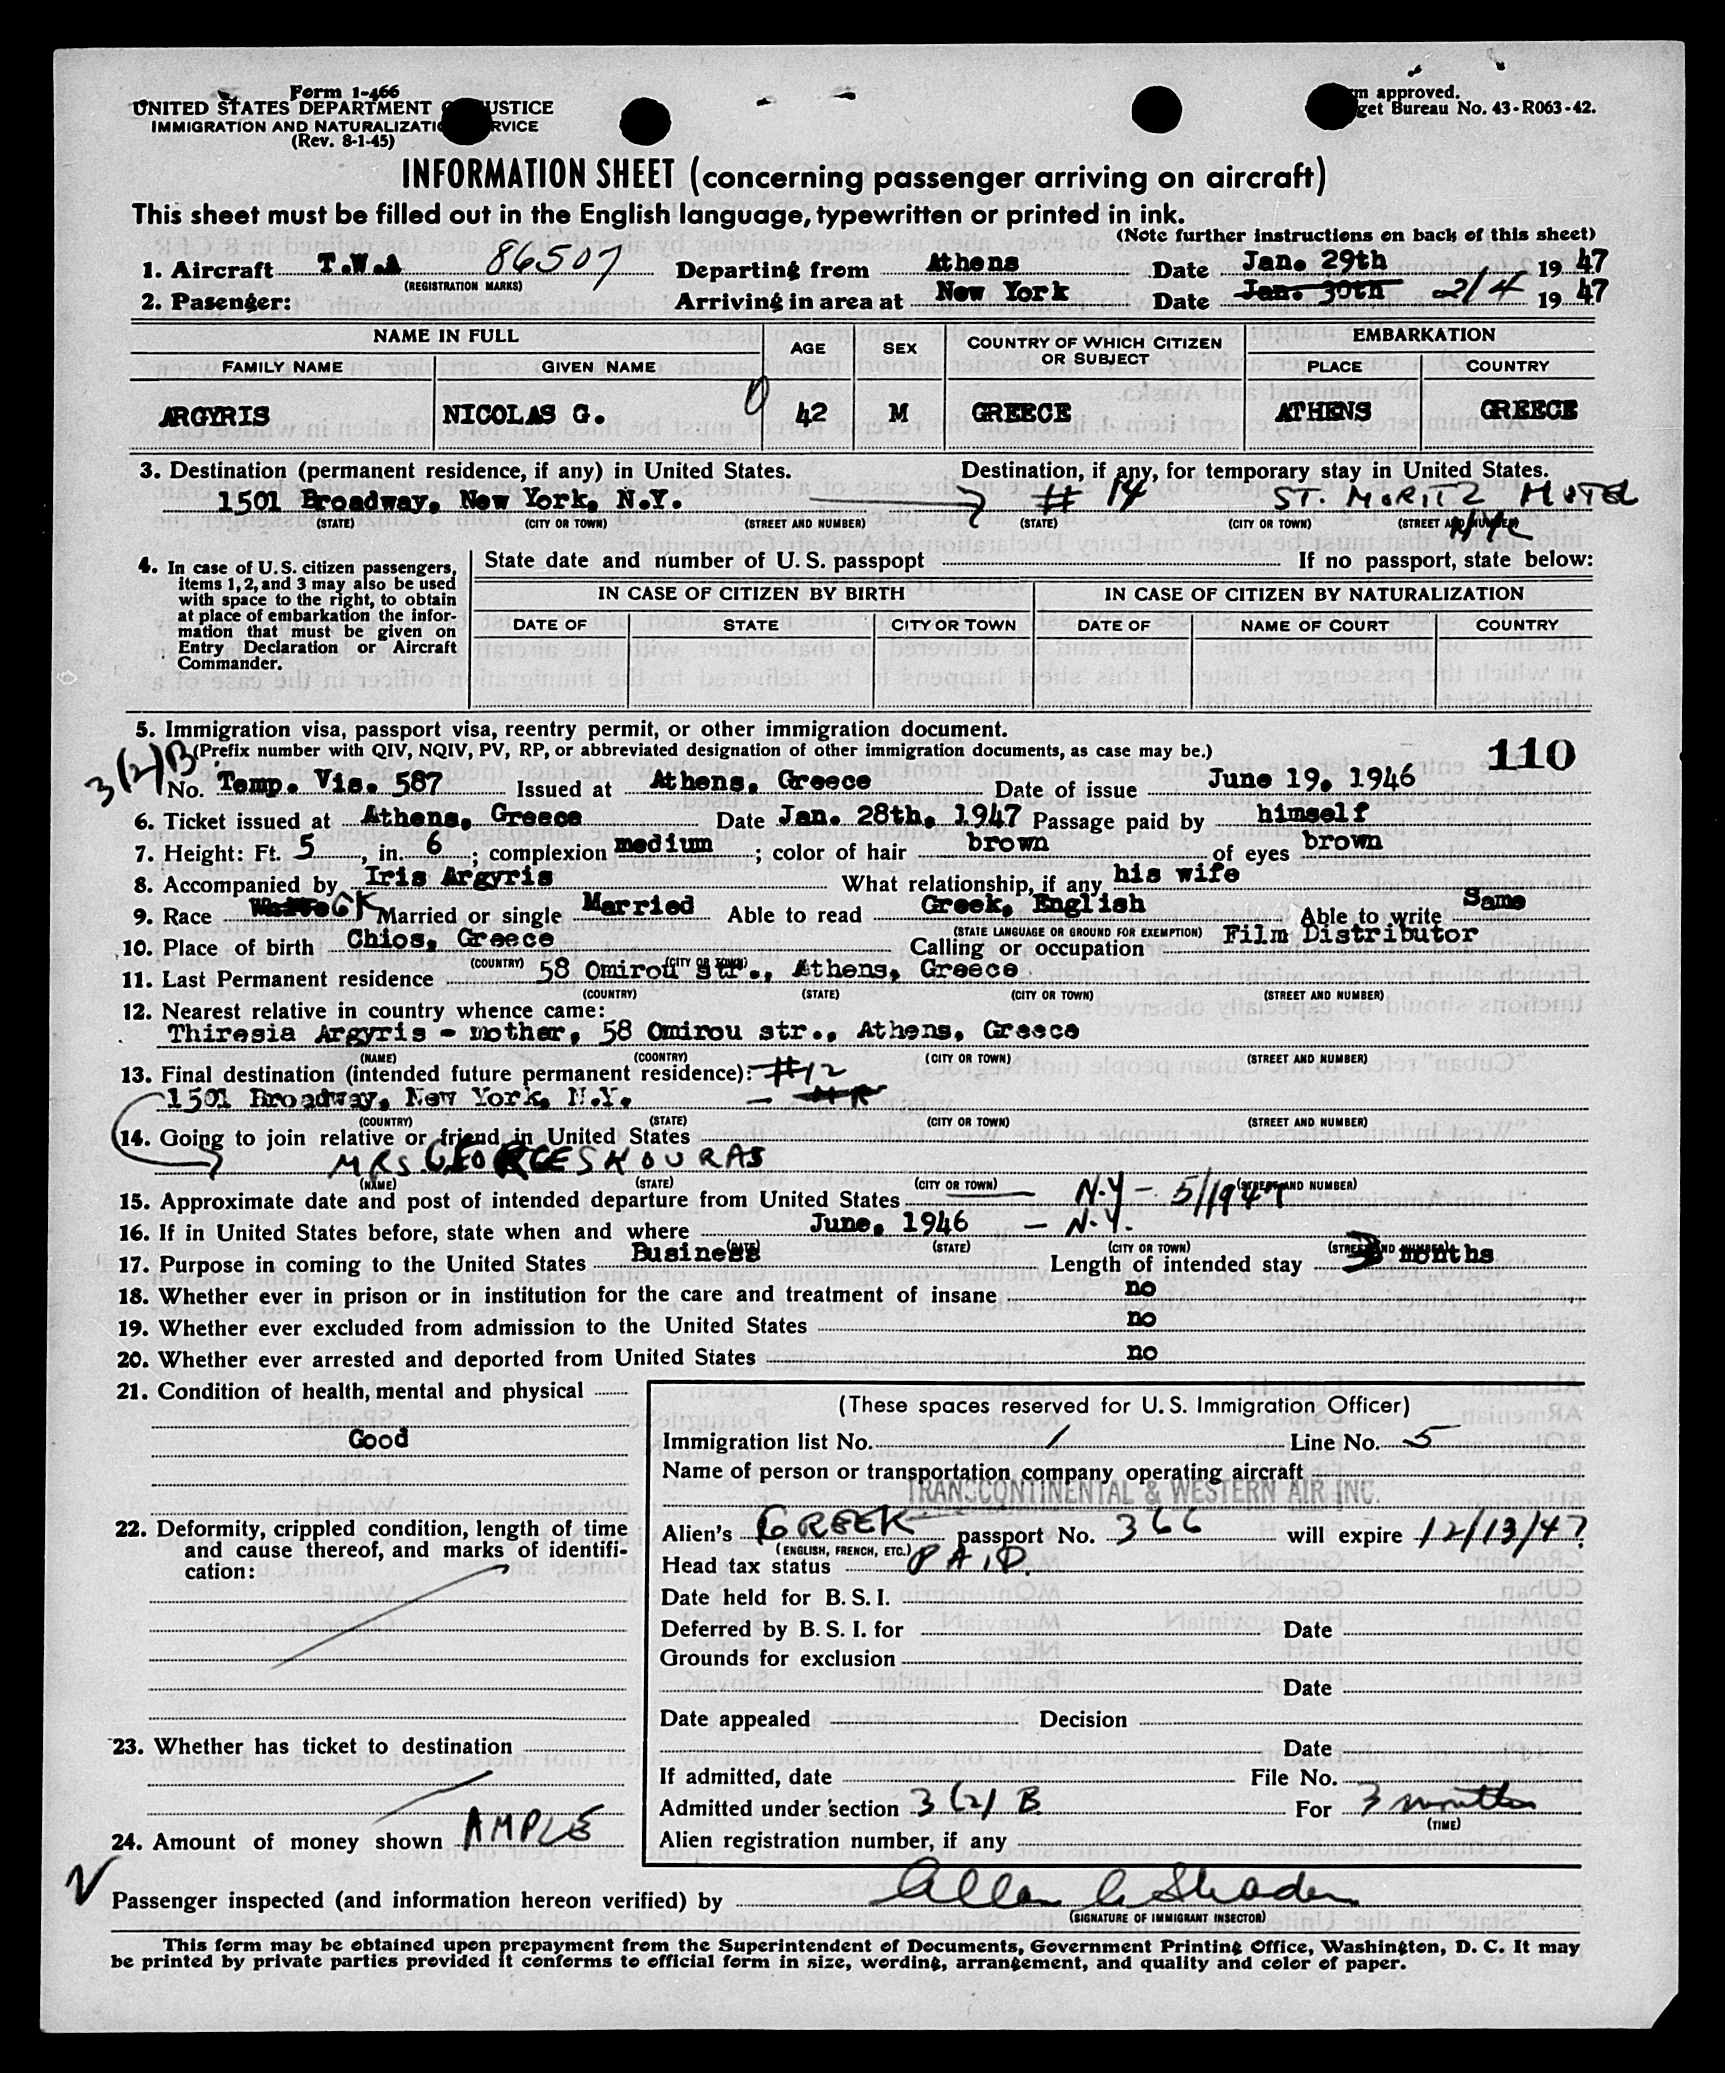 Form 1-466
UNITED STATES DEPARTMENT JUSTICE
IMMIGRATION AND NATURALIZATI RVICE
(Rev. 8-1-45)
approved.
get Bureau No. 43-R063-42.
INFORMATION SHEET (concerning passenger arriving on aircraft)
This sheet must be filled out in the English language, typewritten or printed in ink.
(Note further instructions on back of this sheet)
1. Aircraft T.W.A 86507 Departing from Athens Date Jan. 29th 19 47
(REGISTRATION MARKS)
2. Pasenger: Arriving in area at New York Date Jan. 30th 2/4 19 47
NAME IN FULL AGE SEX COUNTRY OF WHICH CITIZEN OR SUBJECT EMBARKATION
FAMILY NAME GIVEN NAME PLACE COUNTRY
ARGYRIS NICOLAS G. 42 M GREECE ATHENS GREECE
3. Destination (permanent residence, if any) in United States. Destination, if any, for temporary stay in United States.
1501 Broadway, New York, N.Y. # 14 ST. MORITZ HOTEL
(STATE) (CITY OR TOWN) (STREET AND NUMBER) (STATE) (CITY OR TOWN) (STREET AND NUMBER)
NYC
4. In case of U.S. citizen passengers, items 1, 2, and 3 may also be used with space to the right, to obtain at place of embarkation the information that must be given on Entry Declaration or Aircraft Commander.
State date and number of U.S. passpopt If no passport, state below:
IN CASE OF CITIZEN BY BIRTH IN CASE OF CITIZEN BY NATURALIZATION
DATE OF STATE CITY OR TOWN DATE OF NAME OF COURT COUNTRY
5. Immigration visa, passport visa, reentry permit, or other immigration document.
3(2)B (Prefix number with QIV, NQIV, PV, RP, or abbreviated designation of other immigration documents, as case may be.) 110
No. Temp. Vis. 587 Issued at Athens, Greece Date of issue June 19, 1946
6. Ticket issued at Athens, Greece Date Jan. 28th, 1947 Passage paid by himself
7. Height: Ft. 5, in. 6; complexion medium; color of hair brown of eyes brown
8. Accompanied by Iris Argyris What relationship, if any his wife
9. Race GK Married or single Married Able to read Greek, English Able to write Same
(STATE LANGUAGE OR GROUND FOR EXEMPTION)
10. Place of birth Chios, Greece Calling or occupation Film Distributor
(COUNTRY) (CITY OR TOWN)
11. Last Permanent residence 58 Omirou str., Athens, Greece
(COUNTRY) (STATE) (CITY OR TOWN) (STREET AND NUMBER)
12. Nearest relative in country whence came:
Thiresia Argyris - mother, 58 Omirou str., Athens, Greece
(NAME) (COONTRY) (CITY OR TOWN) (STREET AND NUMBER)
13. Final destination (intended future permanent residence): #12
1501 Broadway, New York, N.Y.
(COUNTRY) (STATE) (CITY OR TOWN) (STREET AND NUMBER)
14. Going to join relative or friend in United States
MRS GEORGE SKOURAS
(NAME) (STATE) (CITY OR TOWN) (STREET AND NUMBER)
15. Approximate date and post of intended departure from United States N.Y - 5/1947
16. If in United States before, state when and where June, 1946 - N.Y.
(DATE) (STATE) (CITY OR TOWN) (STREET AND NUMBER)
17. Purpose in coming to the United States Business Length of intended stay 3 months
18. Whether ever in prison or in institution for the care and treatment of insane no
19. Whether ever excluded from admission to the United States no
20. Whether ever arrested and deported from United States no
21. Condition of health, mental and physical
Good
22. Deformity, crippled condition, length of time and cause thereof, and marks of identification:
23. Whether has ticket to destination
24. Amount of money shown AMPLE
(These spaces reserved for U.S. Immigration Officer)
Immigration list No. 1 Line No. 5
Name of person or transportation company operating aircraft
TRANSCONTINENTAL & WESTERN AIR INC.
Alien's GREEK passport No. 366 will expire 12/13/47
(ENGLISH, FRENCH, ETC.)
Head tax status PAID.
Date held for B.S.I.
Deferred by B.S.I. for Date
Grounds for exclusion
Date
Date appealed Decision
Date
If admitted, date File No.
Admitted under section 3(2) B For 3 months
(TIME)
Alien registration number, if any
Passenger inspected (and information hereon verified) by Allen
(SIGNATURE OF IMMIGRANT INSECTOR)
This form may be obtained upon prepayment from the Superintendent of Documents, Government Printing Office, Washington, D. C. It may
be printed by private parties provided it conforms to official form in size, wording, arrangement, and quality and color of paper.